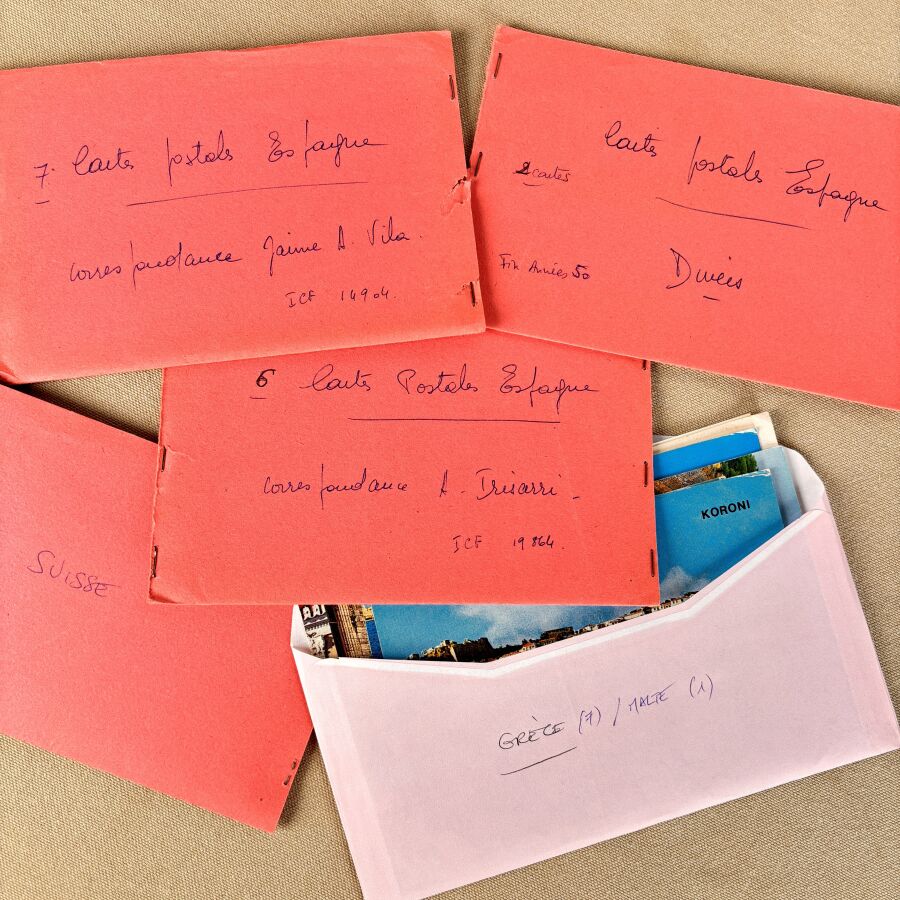 7 Cartes postales Espagne
correspondance Jaime A. Vila.
ICF 14904.
Cartes postales Espagne
2 cartes
Fin Années 50
Divers
6 Cartes Postales Espagne
correspondance A. Irisarri
ICF 19864.
SUISSE
KORONI
GRÈCE (7) / MALTE (1)